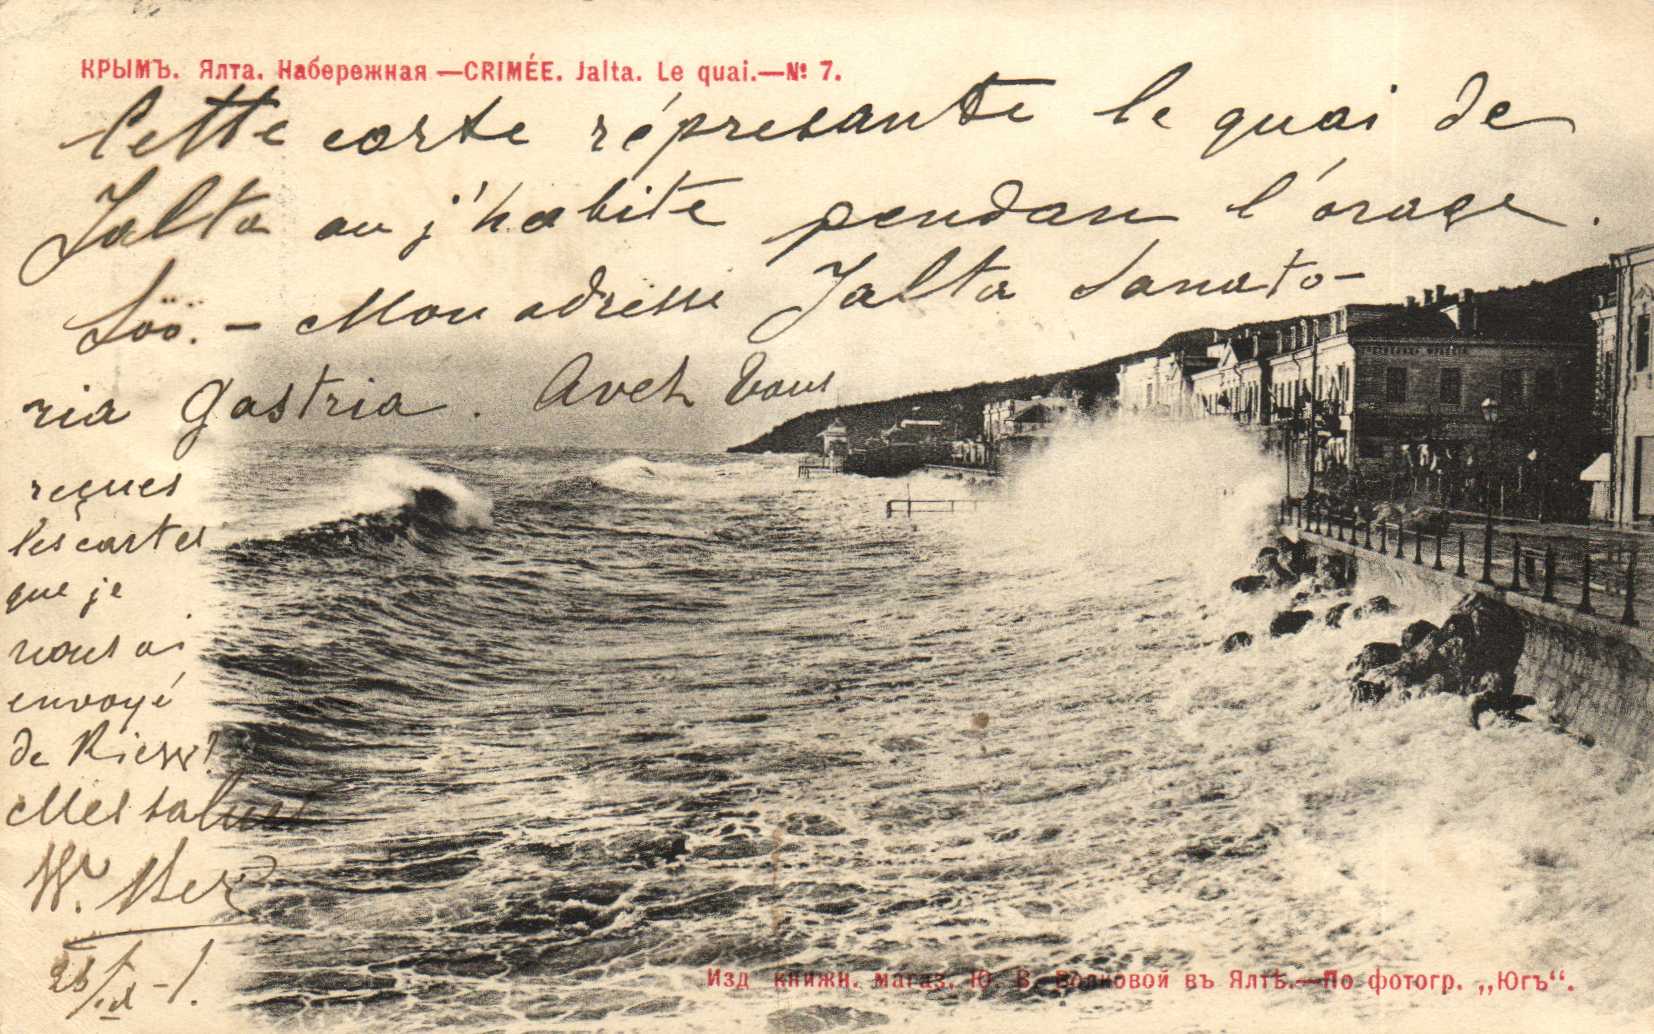 КРЫМЪ. Ялта. Набережная —CRIMÉE. Jalta. Le quai.—№ 7.
Cette carte répresante le quai de
Jalta ou j'habite pendan l'orage.
Mon adresse Jalta Sanato-
ria Gastria. Aveh Vous
reçues
les cartes
que je
vous ai
envoyé
de Kieff?
Mes saluts
W.
Изд книжн. магаз. Ю. В. Волковой въ Ялтѣ.—По фотогр. „Югъ“.